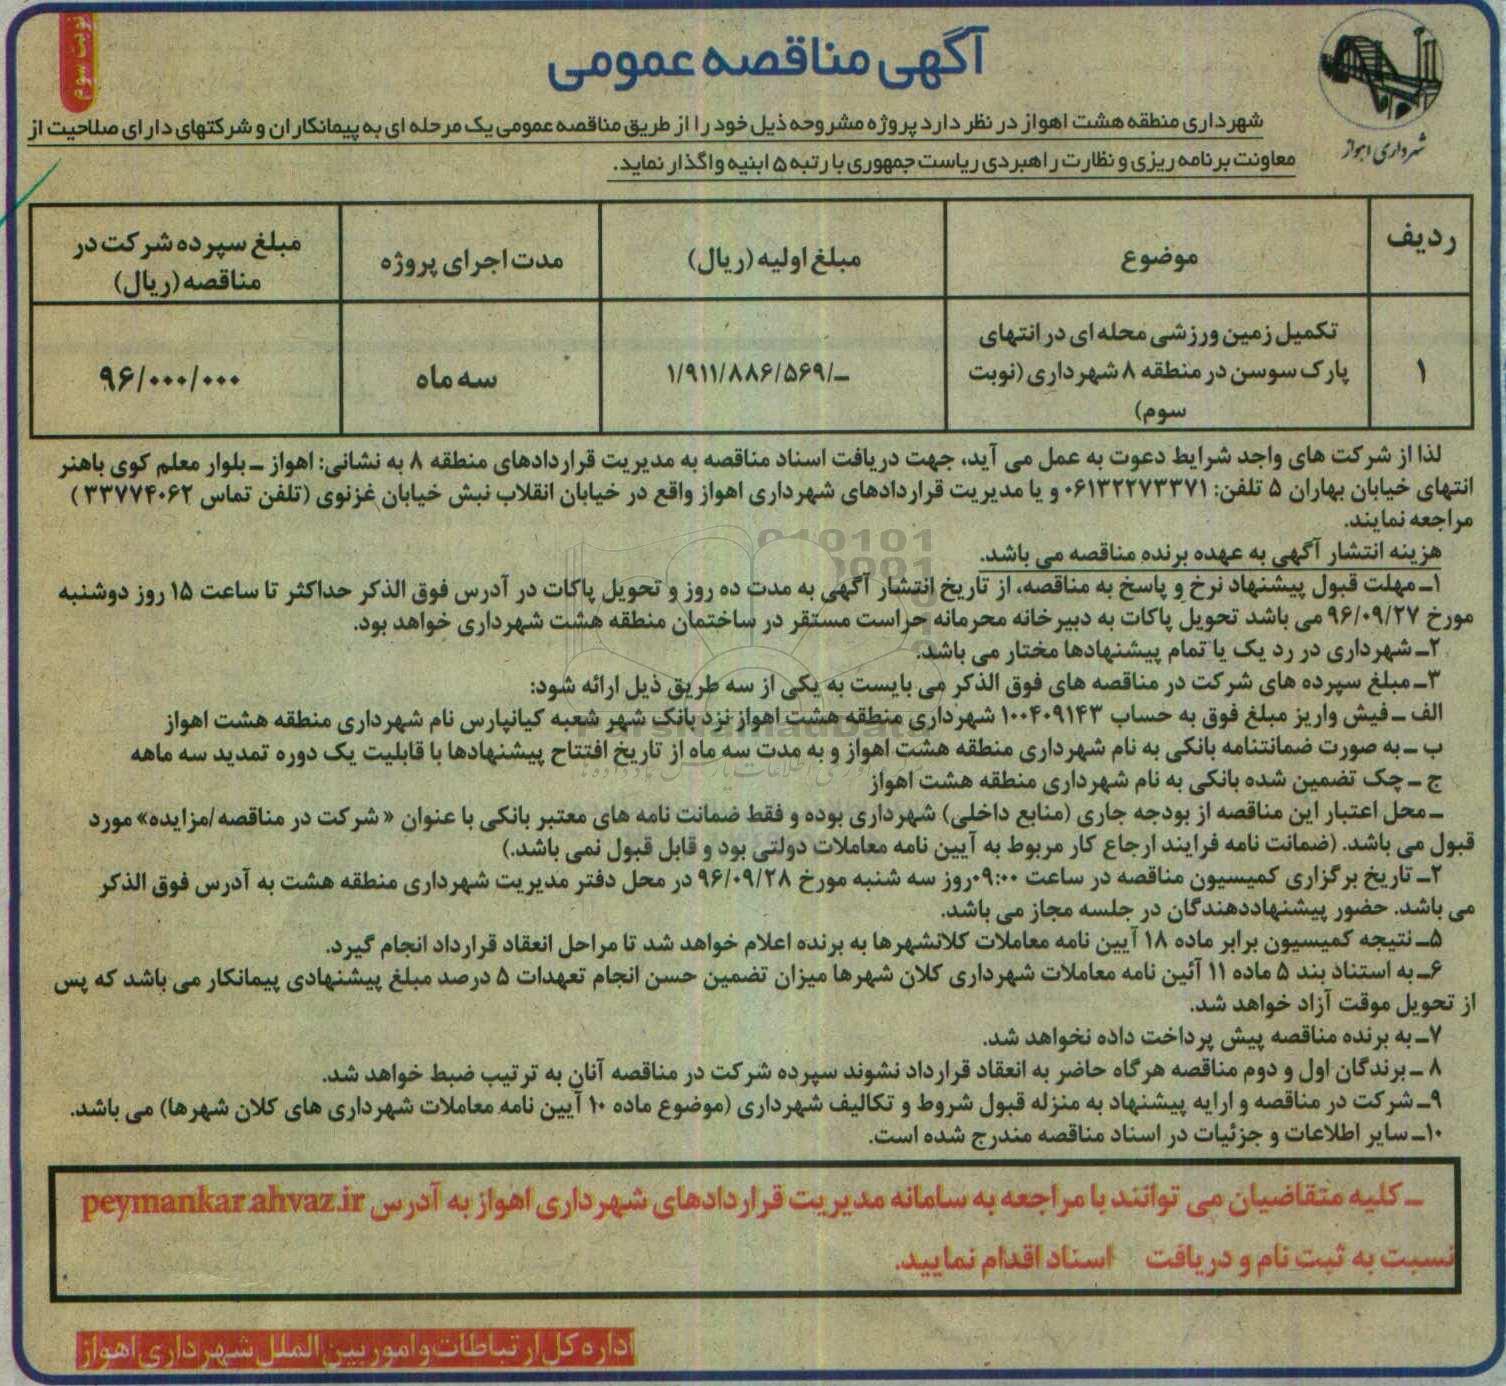 نوبت سوم
آگهی مناقصه عمومی
شهرداری اهواز
شهرداری منطقه هشت اهواز در نظر دارد پروژه مشروحه ذیل خود را از طریق مناقصه عمومی یک مرحله ای به پیمانکاران و شرکتهای دارای صلاحیت از
معاونت برنامه ریزی و نظارت راهبردی ریاست جمهوری با رتبه ۵ ابنیه واگذار نماید.
ردیف | موضوع | مبلغ اولیه (ریال) | مدت اجرای پروژه | مبلغ سپرده شرکت در
مناقصه (ریال)
تکمیل زمین ورزشی محله ای در انتهای
۱ | پارک سوسن در منطقه ۸ شهرداری (نوبت | ۱/۹۱۱/۸۸۶/۵۶۹/ـ | سه ماه | ۹۶/۰۰۰/۰۰۰
سوم)
لذا از شرکت های واجد شرایط دعوت به عمل می آید، جهت دریافت اسناد مناقصه به مدیریت قراردادهای منطقه ۸ به نشانی: اهواز ـ بلوار معلم کوی باهنر
انتهای خیابان بهاران ۵ تلفن: ۰۶۱۳۲۲۷۳۳۷۱ و یا مدیریت قراردادهای شهرداری اهواز واقع در خیابان انقلاب نبش خیابان غزنوی (تلفن تماس ۳۳۷۷۴۰۶۲ )
مراجعه نمایند.
هزینه انتشار آگهی به عهده برنده مناقصه می باشد.
۱ـ مهلت قبول پیشنهاد نرخ و پاسخ به مناقصه، از تاریخ انتشار آگهی به مدت ده روز و تحویل پاکات در آدرس فوق الذکر حداکثر تا ساعت ۱۵ روز دوشنبه
مورخ ۹۶/۰۹/۲۷ می باشد تحویل پاکات به دبیرخانه محرمانه حراست مستقر در ساختمان منطقه هشت شهرداری خواهد بود.
۲ـ شهرداری در رد یک یا تمام پیشنهادها مختار می باشد.
۳ـ مبلغ سپرده های شرکت در مناقصه های فوق الذکر می بایست به یکی از سه طریق ذیل ارائه شود:
الف ـ فیش واریز مبلغ فوق به حساب ۱۰۰۴۰۹۱۴۳ شهرداری منطقه هشت اهواز نزد بانک شهر شعبه کیانپارس نام شهرداری منطقه هشت اهواز
ب ـ به صورت ضمانتنامه بانکی به نام شهرداری منطقه هشت اهواز و به مدت سه ماه از تاریخ افتتاح پیشنهادها با قابلیت یک دوره تمدید سه ماهه
ج ـ چک تضمین شده بانکی به نام شهرداری منطقه هشت اهواز
ـ محل اعتبار این مناقصه از بودجه جاری (منابع داخلی) شهرداری بوده و فقط ضمانت نامه های معتبر بانکی با عنوان «شرکت در مناقصه/مزایده» مورد
قبول می باشد. (ضمانت نامه فرایند ارجاع کار مربوط به آیین نامه معاملات دولتی بود و قابل قبول نمی باشد.)
۲ـ تاریخ برگزاری کمیسیون مناقصه در ساعت ۰۹:۰۰ روز سه شنبه مورخ ۹۶/۰۹/۲۸ در محل دفتر مدیریت شهرداری منطقه هشت به آدرس فوق الذکر
می باشد. حضور پیشنهاددهندگان در جلسه مجاز می باشد.
۵ـ نتیجه کمیسیون برابر ماده ۱۸ آیین نامه معاملات کلانشهرها به برنده اعلام خواهد شد تا مراحل انعقاد قرارداد انجام گیرد.
۶ـ به استناد بند ۵ ماده ۱۱ آئین نامه معاملات شهرداری کلان شهرها میزان تضمین حسن انجام تعهدات ۵ درصد مبلغ پیشنهادی پیمانکار می باشد که پس
از تحویل موقت آزاد خواهد شد.
۷ـ به برنده مناقصه پیش پرداخت داده نخواهد شد.
۸ ـ برندگان اول و دوم مناقصه هرگاه حاضر به انعقاد قرارداد نشوند سپرده شرکت در مناقصه آنان به ترتیب ضبط خواهد شد.
۹ـ شرکت در مناقصه و ارایه پیشنهاد به منزله قبول شروط و تکالیف شهرداری (موضوع ماده ۱۰ آیین نامه معاملات شهرداری های کلان شهرها) می باشد.
۱۰ـ سایر اطلاعات و جزئیات در اسناد مناقصه مندرج شده است.
ـ کلیه متقاضیان می توانند با مراجعه به سامانه مدیریت قراردادهای شهرداری اهواز به آدرس peymankar.ahvaz.ir
نسبت به ثبت نام و دریافت اسناد اقدام نمایید.
اداره کل ارتباطات و امور بین الملل شهرداری اهواز